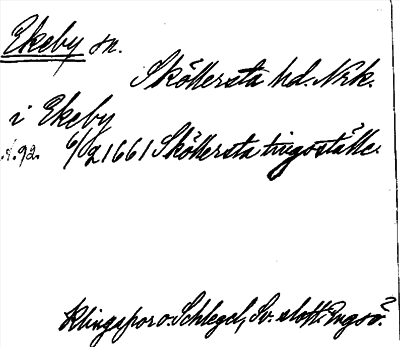 Ekeby sn.
Sköllersta hd. Nrk.
i Ekeby
.s. 92. 6/10 1661 Sköllersta tingställe.
Klingspor o. Schlegel, Sv. slott. Engsö.